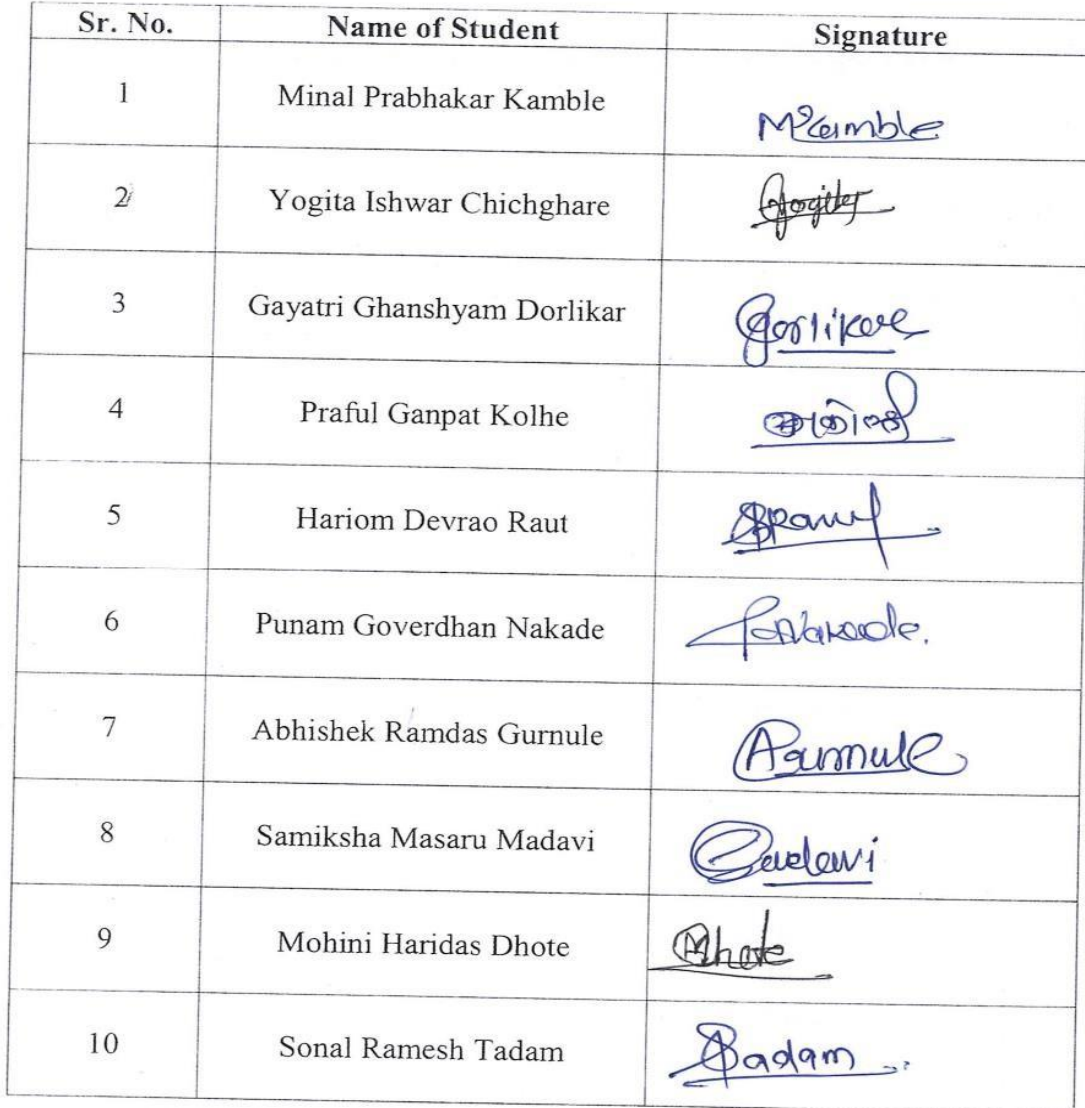 Sr. No. Name of Student Signature
1 Minal Prabhakar Kamble MKamble
2 Yogita Ishwar Chichghare Yogita
3 Gayatri Ghanshyam Dorlikar Dorlikar
4 Praful Ganpat Kolhe
5 Hariom Devrao Raut
6 Punam Goverdhan Nakade
7 Abhishek Ramdas Gurnule AGurnule
8 Samiksha Masaru Madavi
9 Mohini Haridas Dhote Dhote
10 Sonal Ramesh Tadam